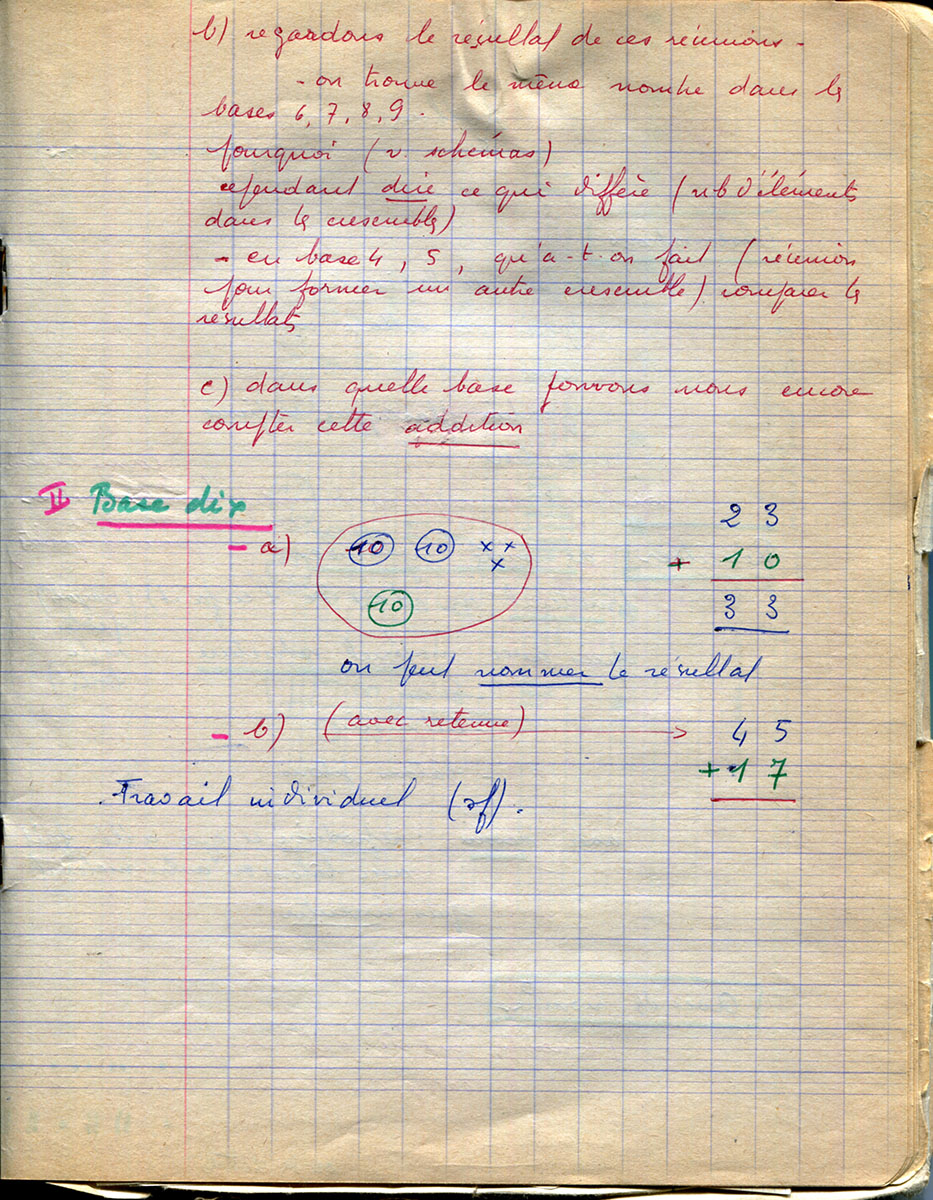 b) regardons le résultat de ces réunions -
- on trouve le même nombre dans les
bases 6, 7, 8, 9.
pourquoi (v. schémas)
cependant dire ce qui diffère (nb d'éléments
dans les ensembles)
- en base 4, 5, qu'a-t-on fait (réunion
pour former un autre ensemble) comparer les
résultats
c) dans quelle base pouvons nous encore
compter cette addition
II Base dix
- a)
10 10 x x
x
10
2 3
+ 1 0
3 3
on peut nommer le résultat
- b) (avec retenue)
4 5
+ 1 7
Travail individuel